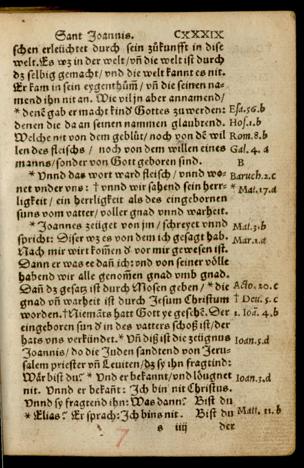 Sant Joannis. CXXXIX
schen erleüchtet durch sein zůkunfft in dise
welt. Es wz in der welt/ vñ die welt ist durch
dz selbig gemacht/ vnd die welt kannt es nit.
Er kam in sein eygenthům̃/ vñ die seinen na-
mend ihn nit an. Wie vil jn aber annamend/
* denẽ gab er macht kind Gottes zů werden: Esa.56.b
denen die da an seinen nammen glaubend. Hos.1.b
Welche nit von dem geblüt/ noch von dẽ wil Rom.8.b
len des fleischs/ noch von dem willen eines Gal.4.a
manns/ sonder von Gott geboren sind. B
* Vnnd das wort ward fleisch/ vnnd wo- Baruch.2.c
net vnder vns: † vnnd wir sahend sein herr- * Mat.17.a
ligkeit/ ein herrligkeit als des eingebornen
suns vom vatter/ voller gnad vnnd warheit.
* Joannes zeüget von jm/ schreyet vnnd Mat.3.b
spricht: Diser wz es von dem ich gesagt hab. Mar.1.a
Nach mir wirt kom̃en ď vor mir gewesen ist.
Dann er was ee dañ ich: vnd von seiner völle
habend wir alle genom̃en gnad vmb gnad.
Dañ dz gesatz ist durch Mosen geben/ * die Acto.20.c
gnad vñ warheit ist durch Jesum Christum † Deu.5.c
worden. † Niemãts hatt Gott ye gesehẽ. Der 1.Ioã.4.b
eingeboren sun ď in des vatters schoß ist/ der
hats vns verkündet. * Vñ diß ist die zeügnus Ioan.5.d
Joannis/ do die Juden sandtend von Jeru-
salem priester vñ Leuiten/ dz sy ihn fragtind:
Wär bist du? * Vnd er bekannt/ vnd löugnet Ioan.3.d
nit. Vnnd er bekañt: Jch bin nit Christus.
Vnnd sy fragtend ihn: Was dann? Bist du
* Elias? Er sprach: Jch bins nit. Bist du Matt.11.b
s iiij der
7